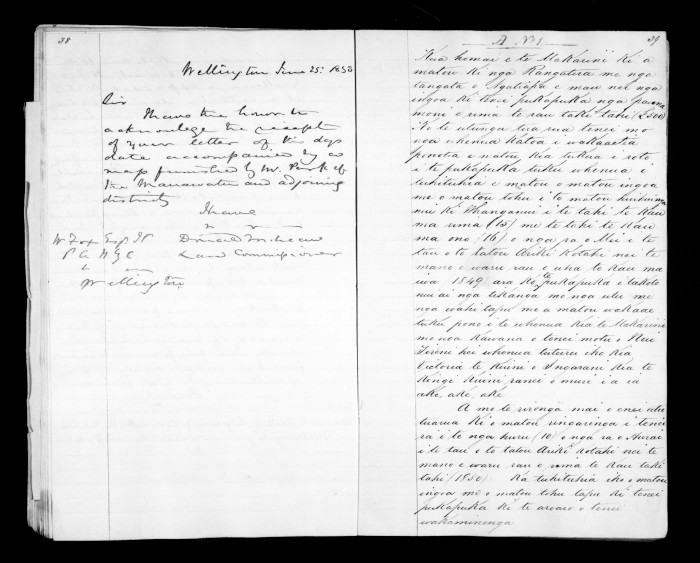 38
Wellington June 25. 1850
Sir
I have the honor to
acknowledge the receipt
of your letter of this days
date accompanied by a
map furnished by Mr. Park of
the Manawatu and adjoining
districts
I have
Donald McLean
Land Commissioner
W Fox Esqr
P A NZC
Wellington
39
A No 1
Kua homai e te Makarini ki a
matou ki nga Rangatira me nga
tangata o Ngatiapa e mau nei nga
ingoa ki tenei pukapuka nga pauna
moni e rima te rau takitahi (£2500)
Ko te utunga tuarua tenei mo
nga whenua katoa i wakaaetia
ponotia e matou kia tukua i roto
i te pukapuka tuku whenua i
tuhituhia e matou o matou ingoa
me o matou tohu i to matou huihuinga
nui ki Whanganui i te tahi te kau
ma rima (15) me te tahi te kau
ma ono (16) o nga ra o Mei i te
tau o to tatou Ariki kotahi nei te
mano e waru rau e wha te kau ma
iwa 1849 ara ko te pukapuka i takoto
nui ai nga tikanga mo nga utu me
nga wahi tapu me a matou wakaae
tuku pono i te whenua kia te Makarini
mo nga Kawana o tenei motu o Niu
Tireni hei whenua tuturu iho kia
Victoria te Kuini o Ingarani kia te
Kingi Kuini ranei o muri i a ia
ake, ake, ake
A mo te rironga mai o enei utu
tuarua ki o matou ringaringa i tenei
ra i te nga huru (10) o nga ra o Hurai
i te tau o to tatou Ariki kotahi nei te
mano e waru rau e rima te kau taki
tahi (1850) Ka tuhituhia iho o matou
ingoa me o matou tohu tapu ki tenei
pukapuka ki te aroaro o tenei
wakaminenga